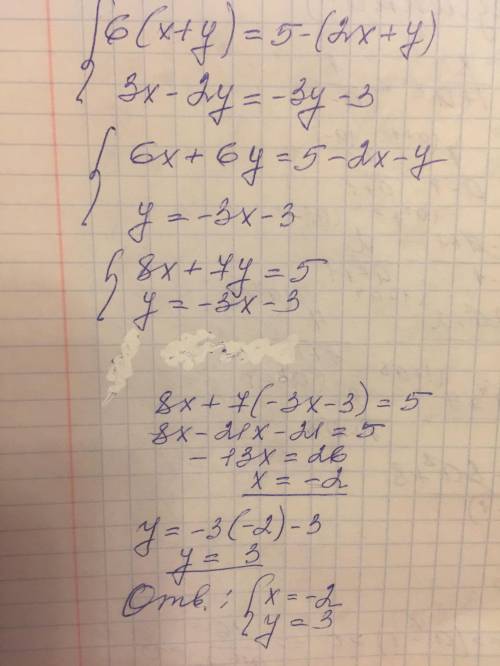 { 6(x+y) = 5-(2x+y)
3x-2y=-3y-3
{ 6x+6y=5-2x-y
y=-3x-3
{ 8x+7y=5
y=-3x-3
8x+7(-3x-3)=5
8x-21x-21=5
-13x=26
x=-2
y=-3(-2)-3
y=3
Отв.: { x=-2
y=3